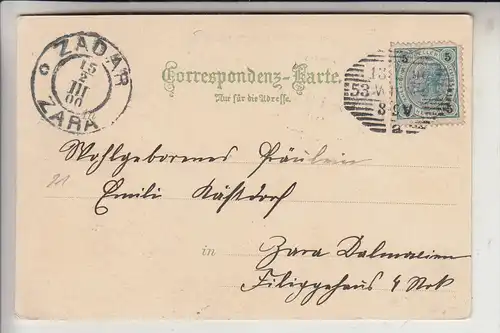 ZADAR
15
III
00
ZARA
Correspondenz-Karte.
Nur für die Adresse.
5 5
13
53
Wohlgeborenes Fräulein
Emili Kästdorf
in Zara Dalmatien
Filippehaus 4 Stok